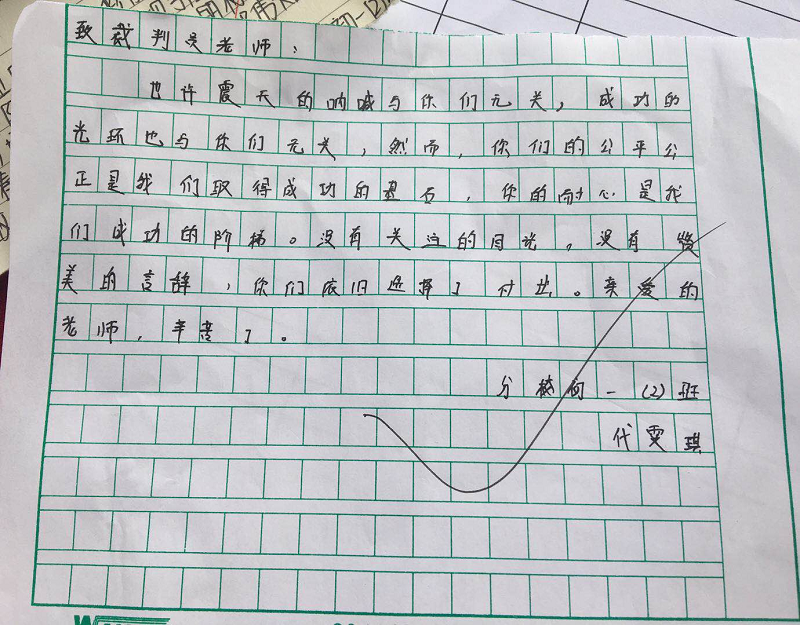 致裁判员老师：
也许震天的呐喊与你们无关，成功的
光环也与你们无关，然而，你们的公平公
正是我们取得成功的基石，你的耐心是我
们成功的阶梯。没有关注的目光，没有赞
美的言辞，你们依旧选择了付出。亲爱的
老师，辛苦了。
分校初一(2)班
代雯琪